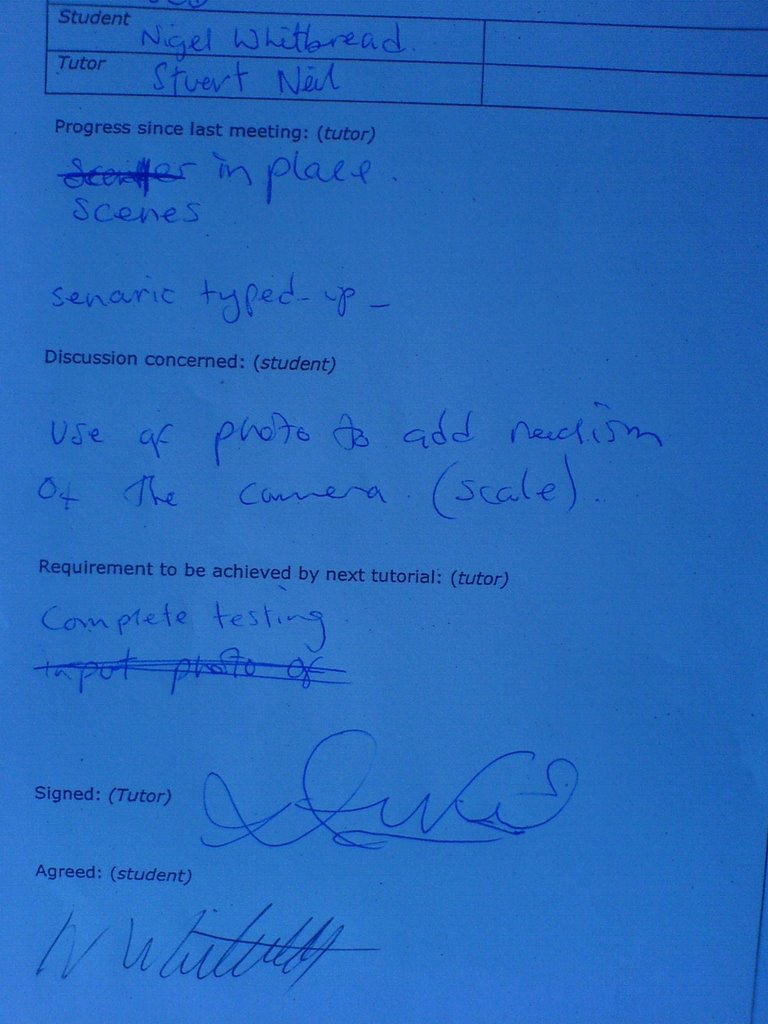 Student Nigel Whitbread.
Tutor Stuert Neil
Progress since last meeting: (tutor)
in place.
Scenes
senaric typed-up -
Discussion concerned: (student)
Use of photo to add realism
Of The camera. (scale)..
Requirement to be achieved by next tutorial: (tutor)
Complete testing.
input photo of
Signed: (Tutor)
Agreed: (student)
N Whitbread